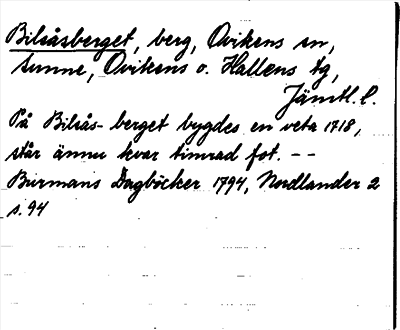 Bilsåsberget, berg, Ovikens sn,
Sunne, Ovikens o. Hallens tg,
Jämtl. l.
På Bilsås-berget bygdes en veta 1718,
står ännu kvar timrad fot. --
Burmans Dagböcker 1794, Nordlander 2
s. 94